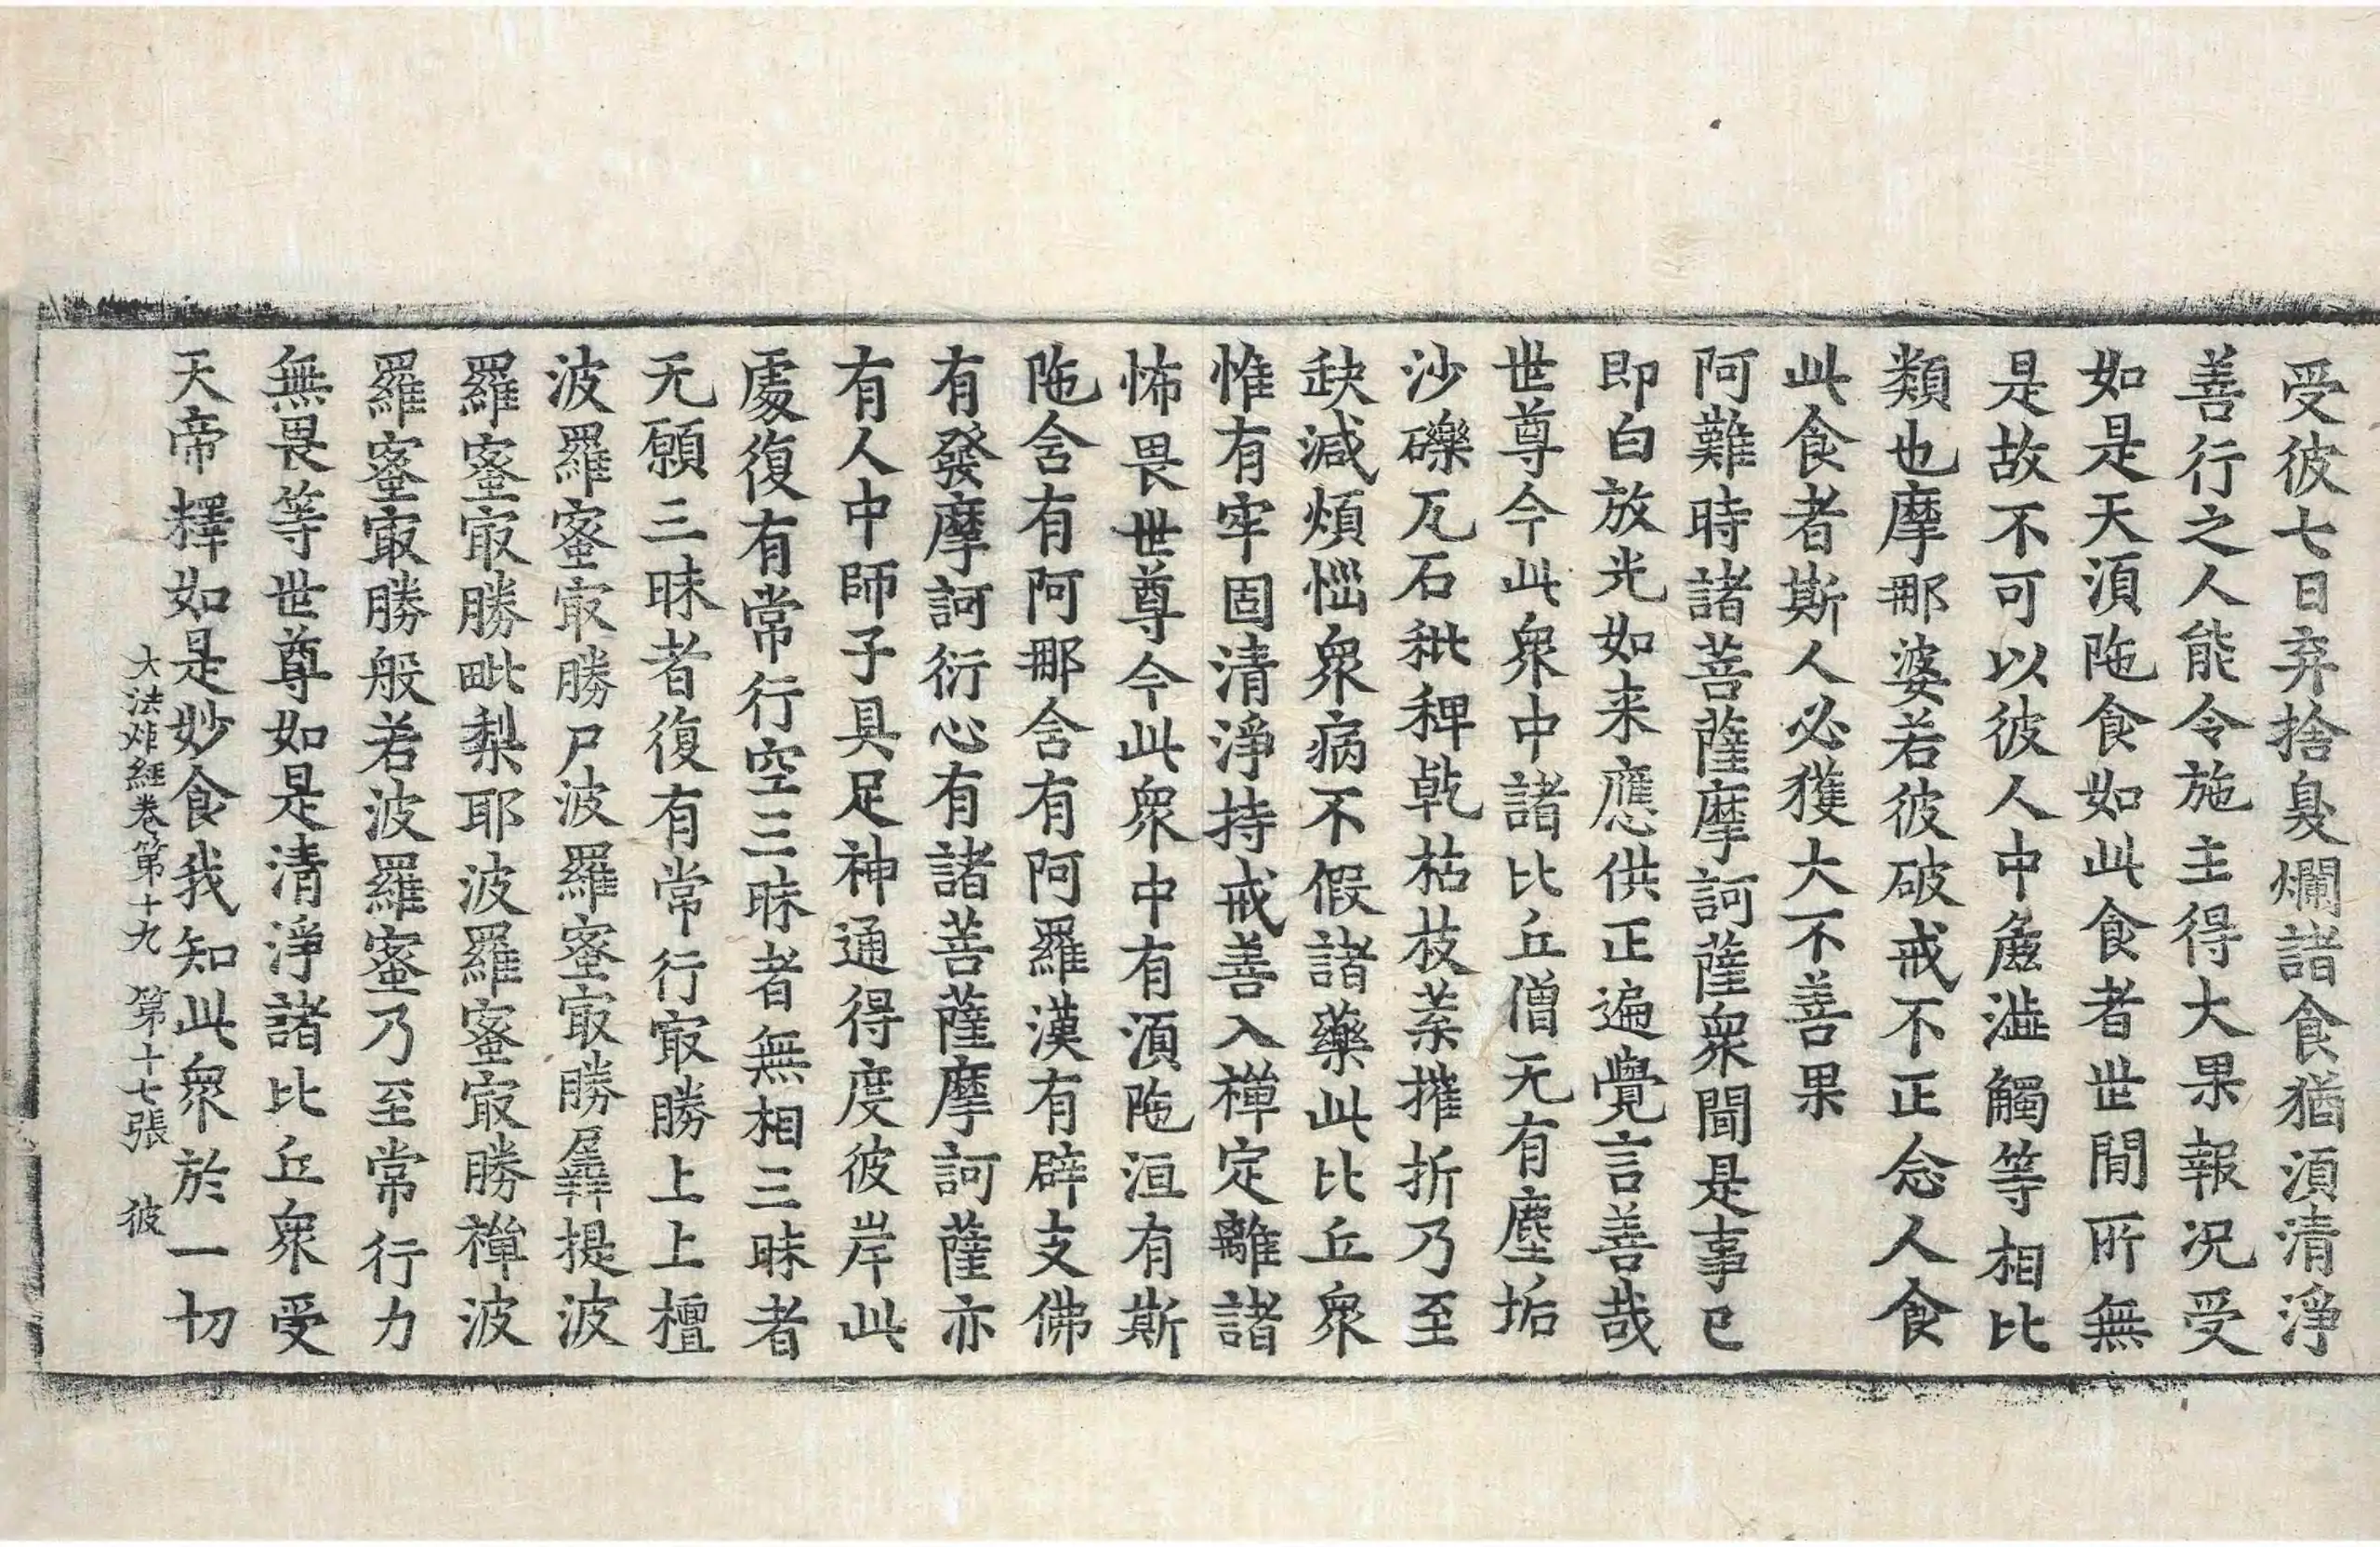 受彼七日弃捨臭爛諸食猶湏清淨
善行之人能令施主得大果報况受
如是天湏陁食如此食者世間所無
是故不可以彼人中麁澁觸等相比
類也摩那婆若彼破戒不正念人食
此食者斯人必獲大不善果
阿難時諸菩薩摩訶薩衆聞是事已
即白放光如来應供正遍覺言善哉
世尊今此衆中諸比丘僧无有塵垢
沙礫瓦石秕稗乾枯枝葉摧折乃至
缺減煩惱衆病不假諸藥此比丘衆
惟有牢固清淨持戒善入禪定離諸
怖畏世尊今此衆中有湏陁洹有斯
陁舍有阿那舍有阿羅漢有辟支佛
有發摩訶衍心有諸菩薩摩訶薩亦
有人中師子具足神通得度彼岸此
處復有常行空三昧者無相三昧者
无願三昧者復有常行㝡勝上上檀
波羅蜜㝡勝尸波羅蜜㝡勝羼提波
羅蜜㝡勝毗梨耶波羅蜜㝡勝禪波
羅蜜㝡勝般若波羅蜜乃至常行力
無畏等世尊如是清淨諸比丘衆受
天帝釋如是妙食我知此衆於一切
大法炬經卷第十九　第十七張　彼